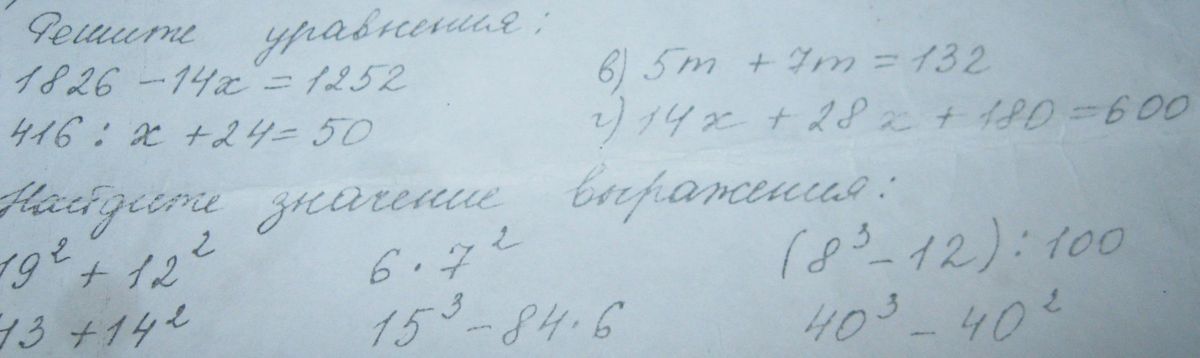 Решите уравнения:
1826 - 14x = 1252
в) 5m + 7m = 132
416 : x + 24 = 50
г) 14x + 28x + 180 = 600
Найдите значение выражения:
19² + 12² 6 · 7² (8³ - 12) : 100
13 + 14² 15³ - 84 · 6 40³ - 40²